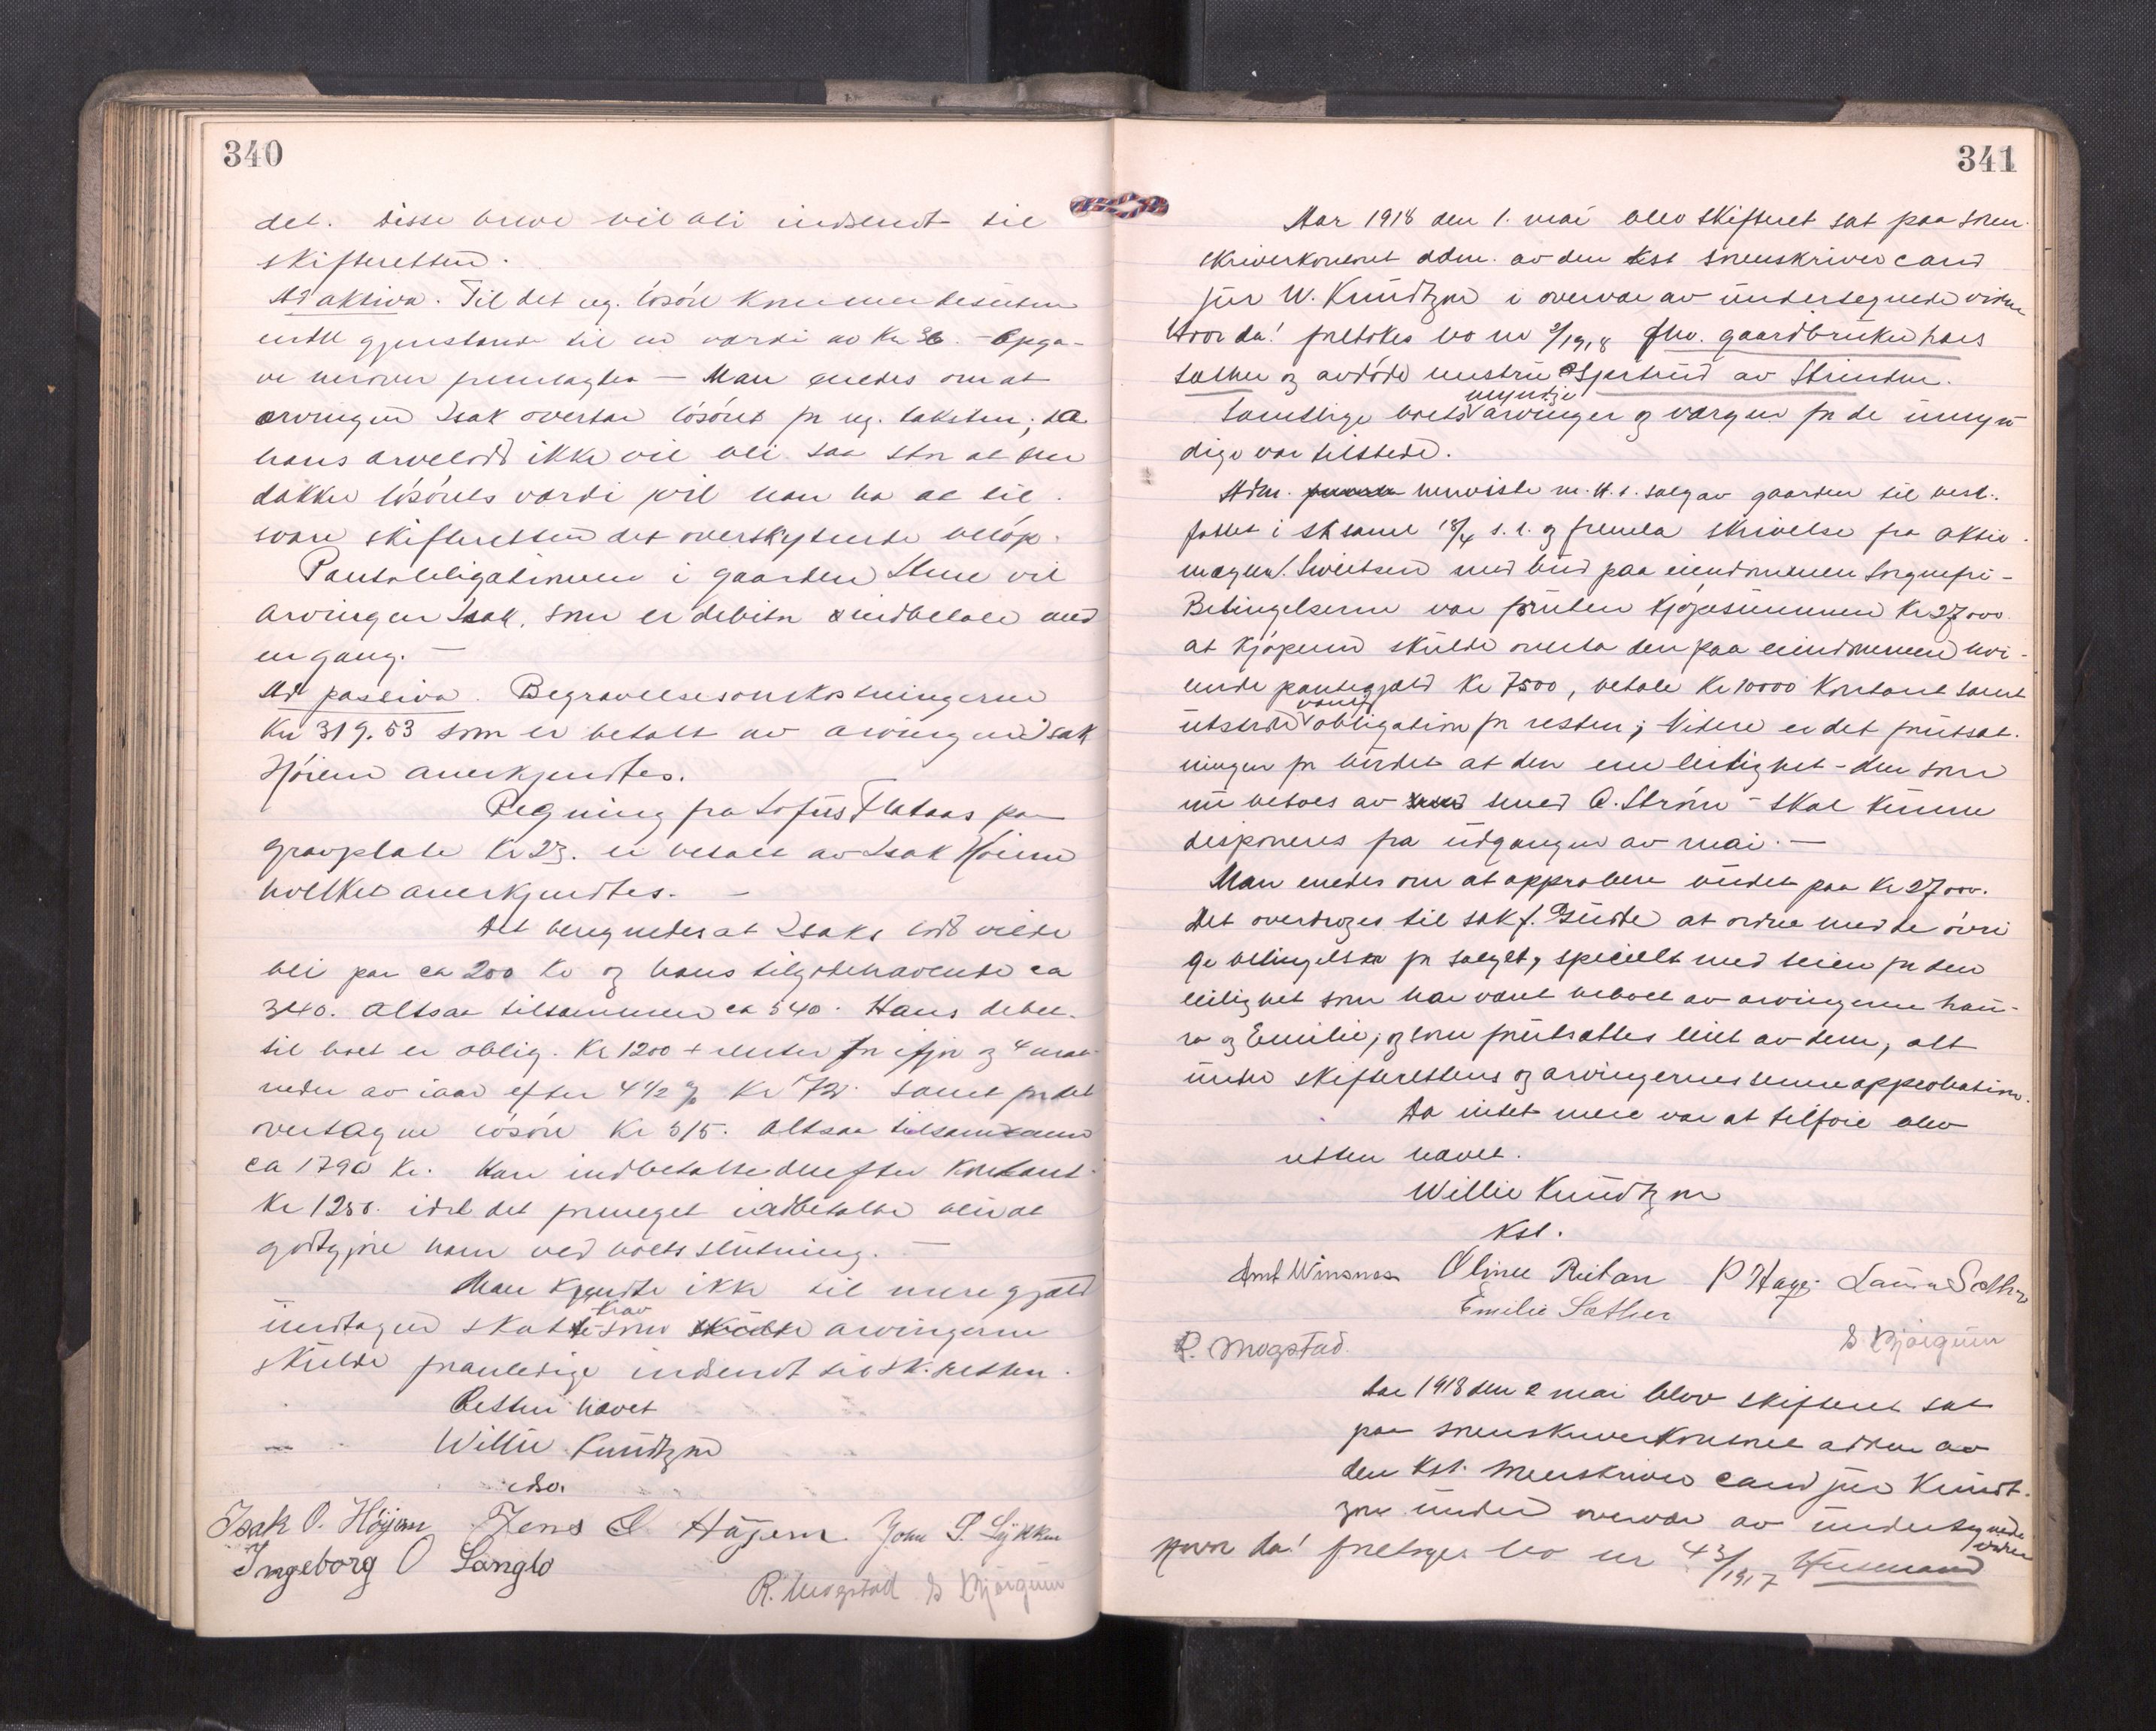 340
det. Disse breve vil bli indsendt til
skifteretten.
Ad aktiva. Til det reg. løsøre kommer desuten
endel gjenstande til en værdi av Kr 36. - Opga-
ve herover fremlagtes - Man enedes om at
arvingen Isak overtar løsøret for reg. taksten; da
hans arvelodd ikke vil bli saa stor at den
dækker løsørets værdi vil han ha at til-
svare skifteretten det overskytende beløp.
Pantobligationen i gaarden Stene vil
arvingen Isak, som er debitor indbetale med
en gang. -
Ad passiva. Begravelsesomkostningerne
Kr 319.53 som er betalt av arvingen Isak
Höiem anerkjendtes.
Regning fra Sofus Flataas paa
gravplate Kr 23. er betalt av Isak Höiem
hvilket anerkjendtes. -
Det beregnedes at Isaks lodd vilde
bli paa ca 200 Kr og hans tilgodehavende ca
340. altsaa tilsammen ca 540. Hans debet
til boet er oblig. Kr 1200 + renter for ifjor og 4 maa-
neder av iaar efter 4 1/2 % Kr 72. samt for det
overtagne løsøre Kr 515. Altsaa tilsammen
ca 1790 Kr. Han indbetalte derefter kontant
Kr 1250. idet det formeget indbetalte blir at
godtgjøre ham ved boets slutning. -
Man kjendte ikke til mere gjæld
undtagen skattekrav som arvingerne
skulde foranledige indsendt til sk.retten.
Retten hævet
Willie Knudtzon
cst.
Isak O. Höjem Jens O Höjem John P. Lykken
Ingeborg O Langlo
R. Mogstad S Bjørgum
341
Aar 1918 den 1. mai blev skifteret sat paa soren-
skriverkontoret adm. av den kst sorenskriver cand
jur W. Knudtzon i overvær av undertegnede vidner
Hvor da! foretokes bo nr 9/1918 gaardbruker Hans
Sæther og avdøde hustru Gjertrud av Strinden.
Samtlige boets myndige arvinger og værgen for de umyn
dige var tilstede.
Adm. henviste m. H. t. salg av gaarden til det
i sk saml 18/4 s. l. og fremla skrivelse fra aktie-
mægler Sivertsen med bud paa eiendommen Sorgenfri -
Betingelserne var foruten kjøpesummen Kr 27000
at kjøperen skulde overta den paa eiendommen hvi-
lende pantegjæld Kr 7500, betale Kr 10000 kontant samt
utstede obligation for resten; Videre er det forutsæt-
ningen for budet at den ene leilighet - den som
nu beboes av smed O. Strøm - skal kunne
disponeres fra udgangen av mai. -
Man enedes om at approbere budet paa Kr 27000.
Det overdroges til sakf. Gudde at ordne med de øvri
ge betingelser for salget, specielt med leien for den
leilighet som har været beboet av arvingerne Lau-
ra og Emilie, og som forutsattes leiet av dem, alt
under skifterettens og arvingernes senere approbation.
Da intet mere var at tilføie blev
retten hævet.
Willie Knudtzon
Kst.
Arnt Winsnes Oline Reitan P Hage Laura Sæther
Emilie Sæther
R. Mogstad. S Bjørgum
Aar 1918 den 2 mai blev skifteret sat
paa sorenskriverkontoret adm av
den kst. sorenskriver cand jur Knudt-
zon under overvær av undertegnede
vidner
Hvor da! foretoges bo nr 43/1917 Husmand